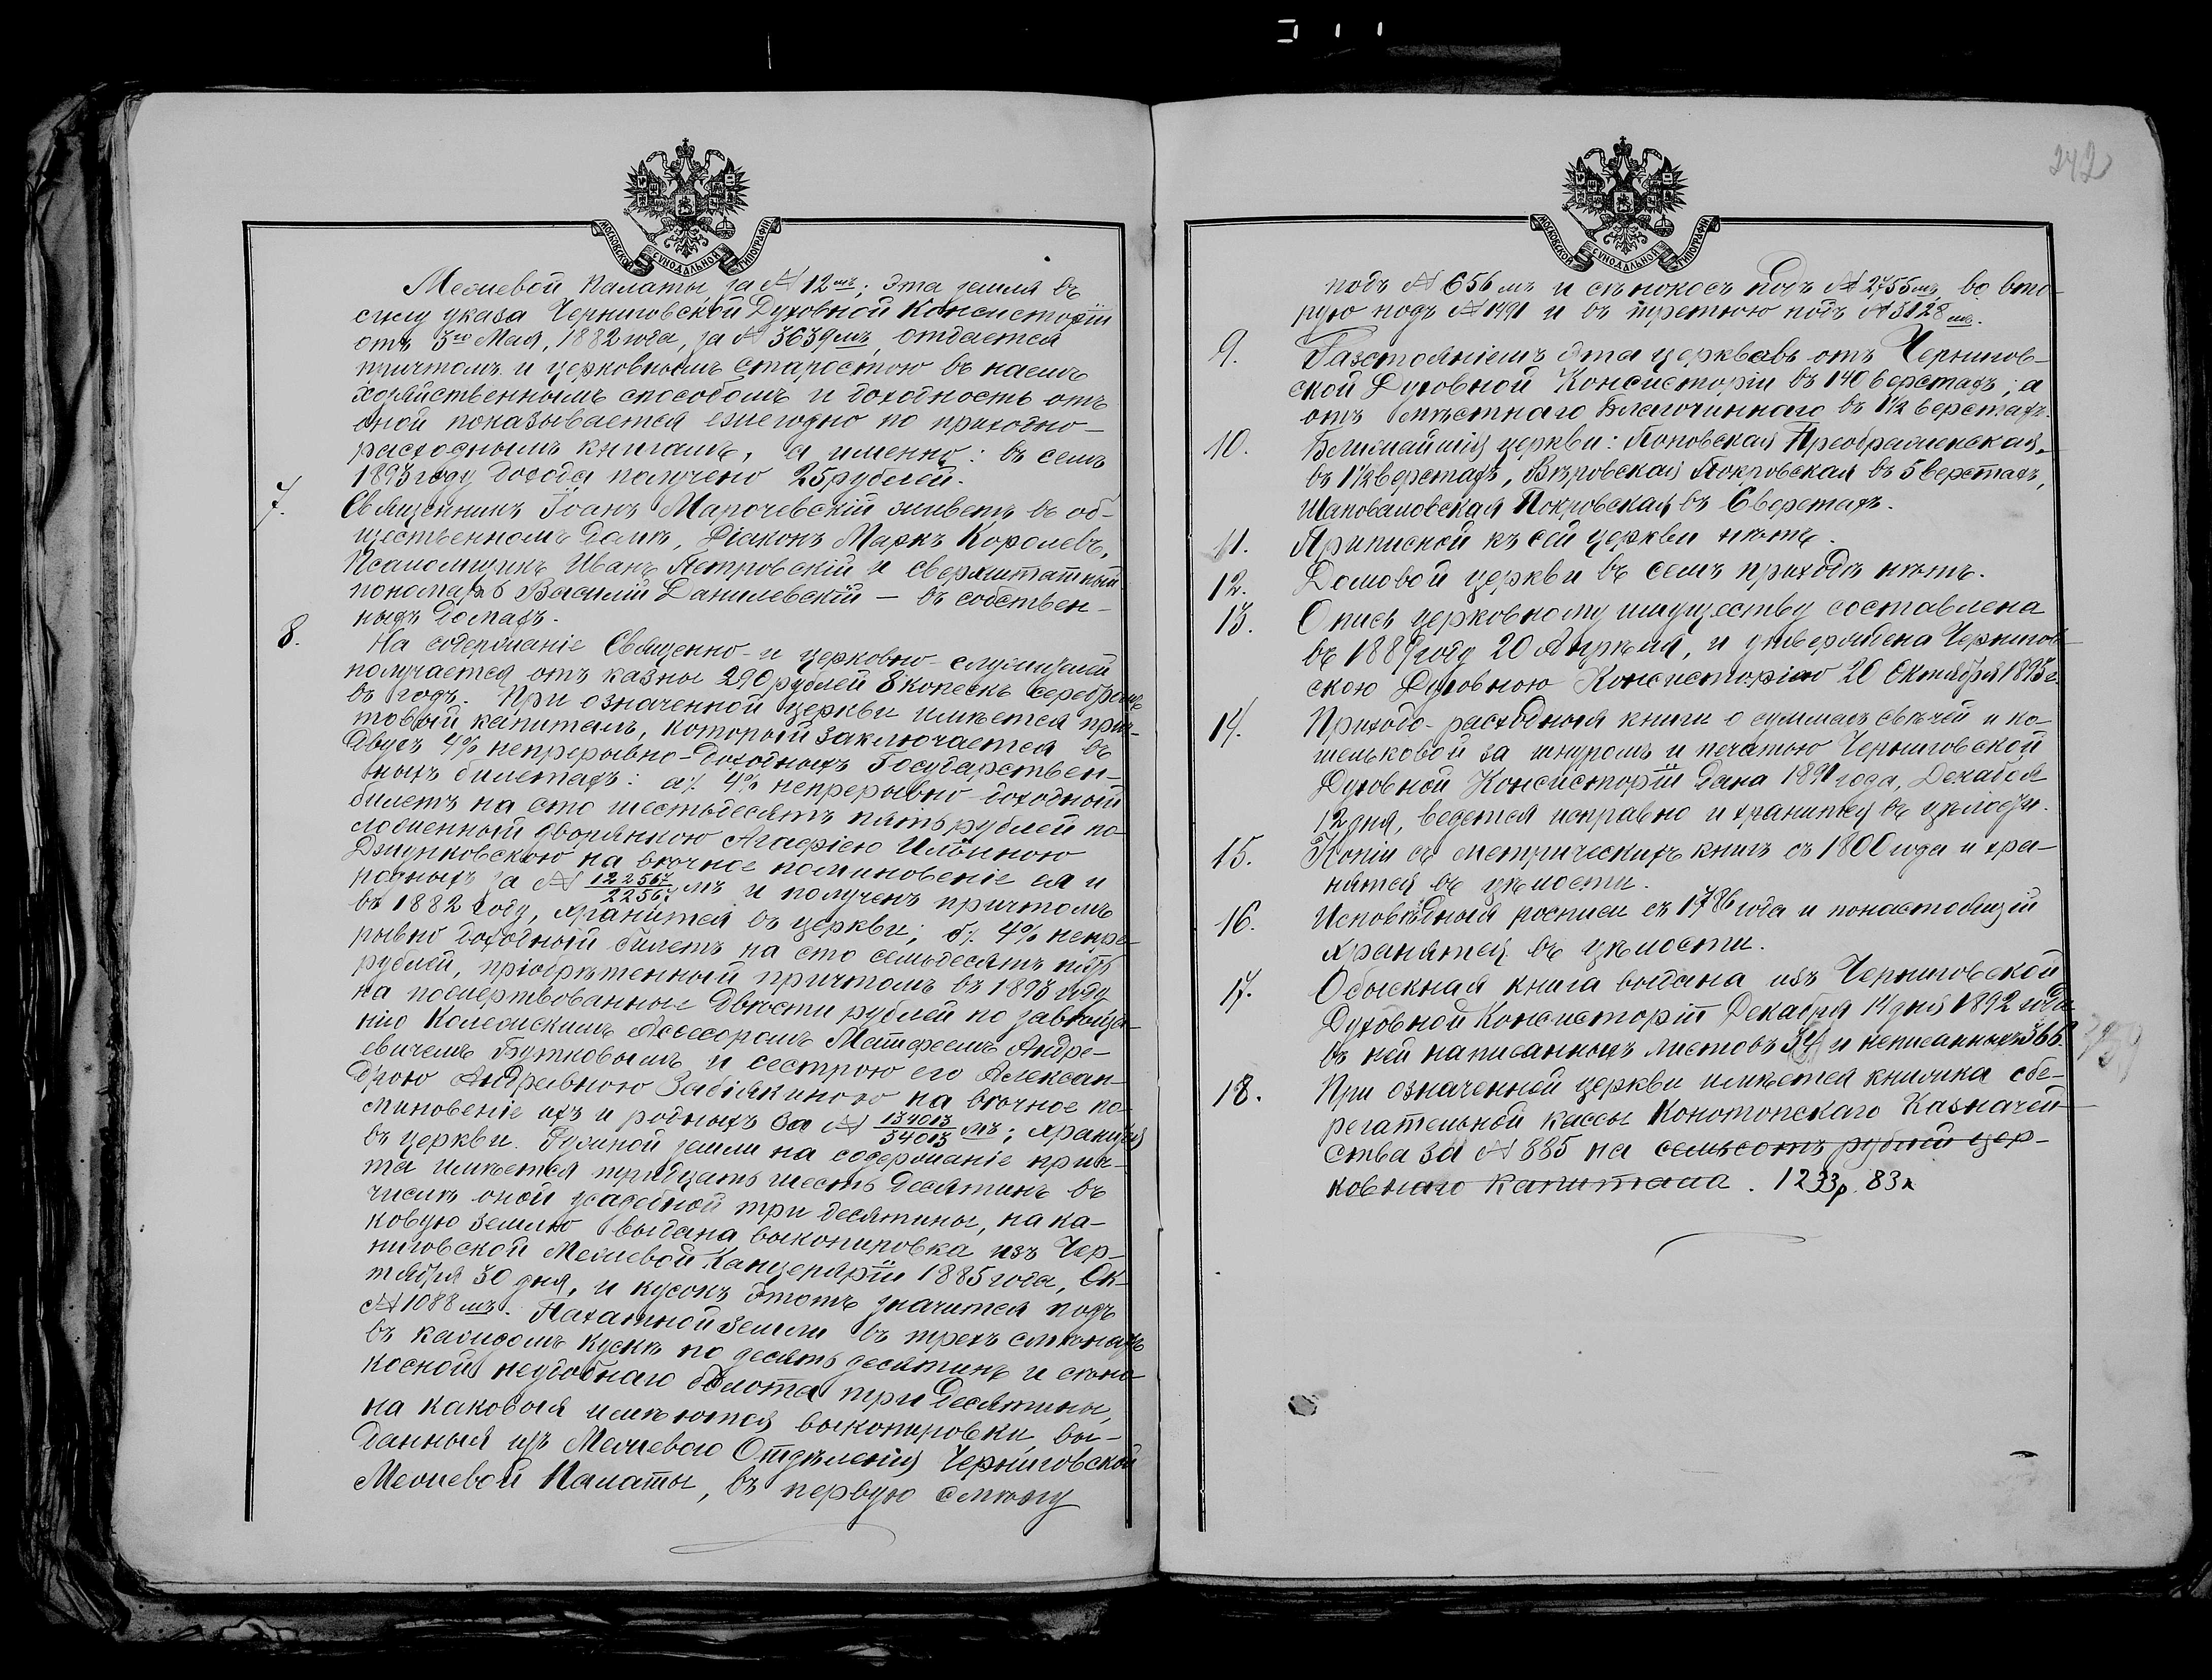 242
МОСКОВСКОЙ СУНОДАЛЬНОЙ ТИПОГРАФІИ
Межевой Палаты за № 12мъ; эта земля въ
силу указа Черниговской Духовной Консисторіи
отъ 3го Мая, 1882 года, за № 3639мъ, отдается
причтомъ и церковнымъ старостою въ наемъ
хозяйственнымъ способомъ и доходность отъ
оной показывается ежегодно по приходо-
расходнымъ книгамъ, а именно: въ семъ
1893 году дохода получено 25 рублей.
7. Священникъ Іоанъ Марочевскій живетъ въ об-
щественномъ домѣ, Діаконъ Маркъ Королевъ,
Псаломщикъ Иванъ Петровскій и сверхштатный
пономарь Василій Данилевскій — въ собствен-
ныхъ домахъ.
8. На содержаніе Священно- и церковно-служителей
получается отъ казны 290 рублей 8 копеекъ серебромъ
въ годъ. При означенной церкви имѣется прич-
товый капиталъ, который заключается въ
двухъ 4% непрерывно-доходныхъ Государствен-
ныхъ билетахъ: а) 4% непрерывно-доходный
билетъ на сто шестьдесятъ пять рублей по-
ложенный дворянкою Агафіею Ильиною
Джунковскою на вѣчное поминовеніе ея и
родныхъ за № 122567/22567 мъ и полученъ причтомъ
въ 1882 году, хранится въ церкви; б) 4% непре-
рывно доходный билетъ на сто семьдесятъ пять
рублей, пріобрѣтенный причтомъ въ 1893 году
на пожертвованные двѣсти рублей по завѣща-
нію Колежскимъ Асессоромъ Матфеемъ Андре-
евичемъ Бутковымъ и сестрою его Алексан-
дрою Андревною Забіякиною на вѣчное по-
миновеніе ихъ и родныхъ за № 134013/34013 мъ; хранится
въ церкви. Ружной земли на содержаніе прич-
та имѣется тридцать шесть десятинъ въ
числѣ оной усадебной три десятины, на ка-
ковую землю выдана выкопировка изъ Чер-
ниговской Межевой Канцеляріи 1885 года, Ок-
тября 30 дня, и кусокъ этотъ значится подъ
№ 1088мъ. Пахатной земли въ трехъ смѣнахъ
въ каждомъ кускѣ по десять десятинъ и сѣно-
косной неудобнаго болота три десятины,
на каковыя имѣются выкопировки, вы-
данныя изъ Межеваго Отдѣленія Черниговской
Межевой Палаты, въ первую смѣну
МОСКОВСКОЙ СУНОДАЛЬНОЙ ТИПОГРАФІИ
подъ № 656мъ и сѣнокосъ подъ № 2755мъ, во вто-
рую подъ № 1491 и въ третью подъ № 3128мъ.
9. Разстояніемъ эта церковь отъ Чернигов-
ской Духовной Консисторіи въ 140 верстахъ; а
отъ мѣстнаго Благочиннаго въ 1½ верстахъ.
10. Ближайшія церкви: Поповская Преображенская,
въ 1½ верстахъ, Вѣровская Покровская въ 5 верстахъ,
Шаповаловская Покровская въ 6 верстахъ.
11. Приписной къ сей церкви нѣтъ.
12. Домовой церкви въ семъ приходѣ нѣтъ.
13. Опись церковному имуществу составлена
въ 1889 году 20 Апрѣля, и утверждена Чернигов-
скою Духовною Консисторіею 20 Октября 1893 г.
14. Приходо-расходныя книги о суммахъ свѣчей и ко-
шельковой за шнуромъ и печатью Черниговской
Духовной Консисторіи дана 1891 года, Декабря
12 дня, ведется исправно и хранится въ цѣлости.
15. Копіи съ метрическихъ книгъ съ 1800 года и хра-
нятся въ цѣлости.
16. Исповѣдныя росписи съ 1786 года и понастоящій
хранятся въ цѣлости.
17. Обыскная книга выдана изъ Черниговской
Духовной Консисторіи Декабря 14 дня 1892 года
въ ней написанныхъ листовъ 34 и неписанныхъ 366.
18. При означенной церкви имѣется книжка сбе-
регательной кассы Конотопскаго Казначей-
ства за № 885 на семьсотъ рублей цер-
ковнаго капитала. 1233 р. 83 к